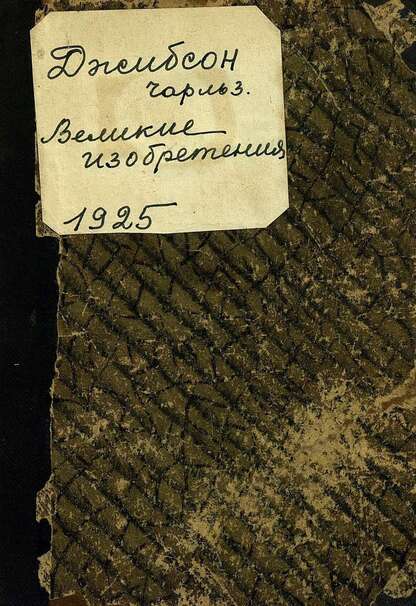 Джибсон
чарльз.
Великие
изобретения
1925